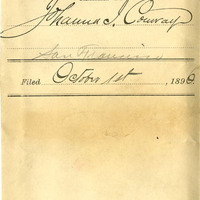 Johanna I. Conway
San Francisco
Filed October 1st, 1896